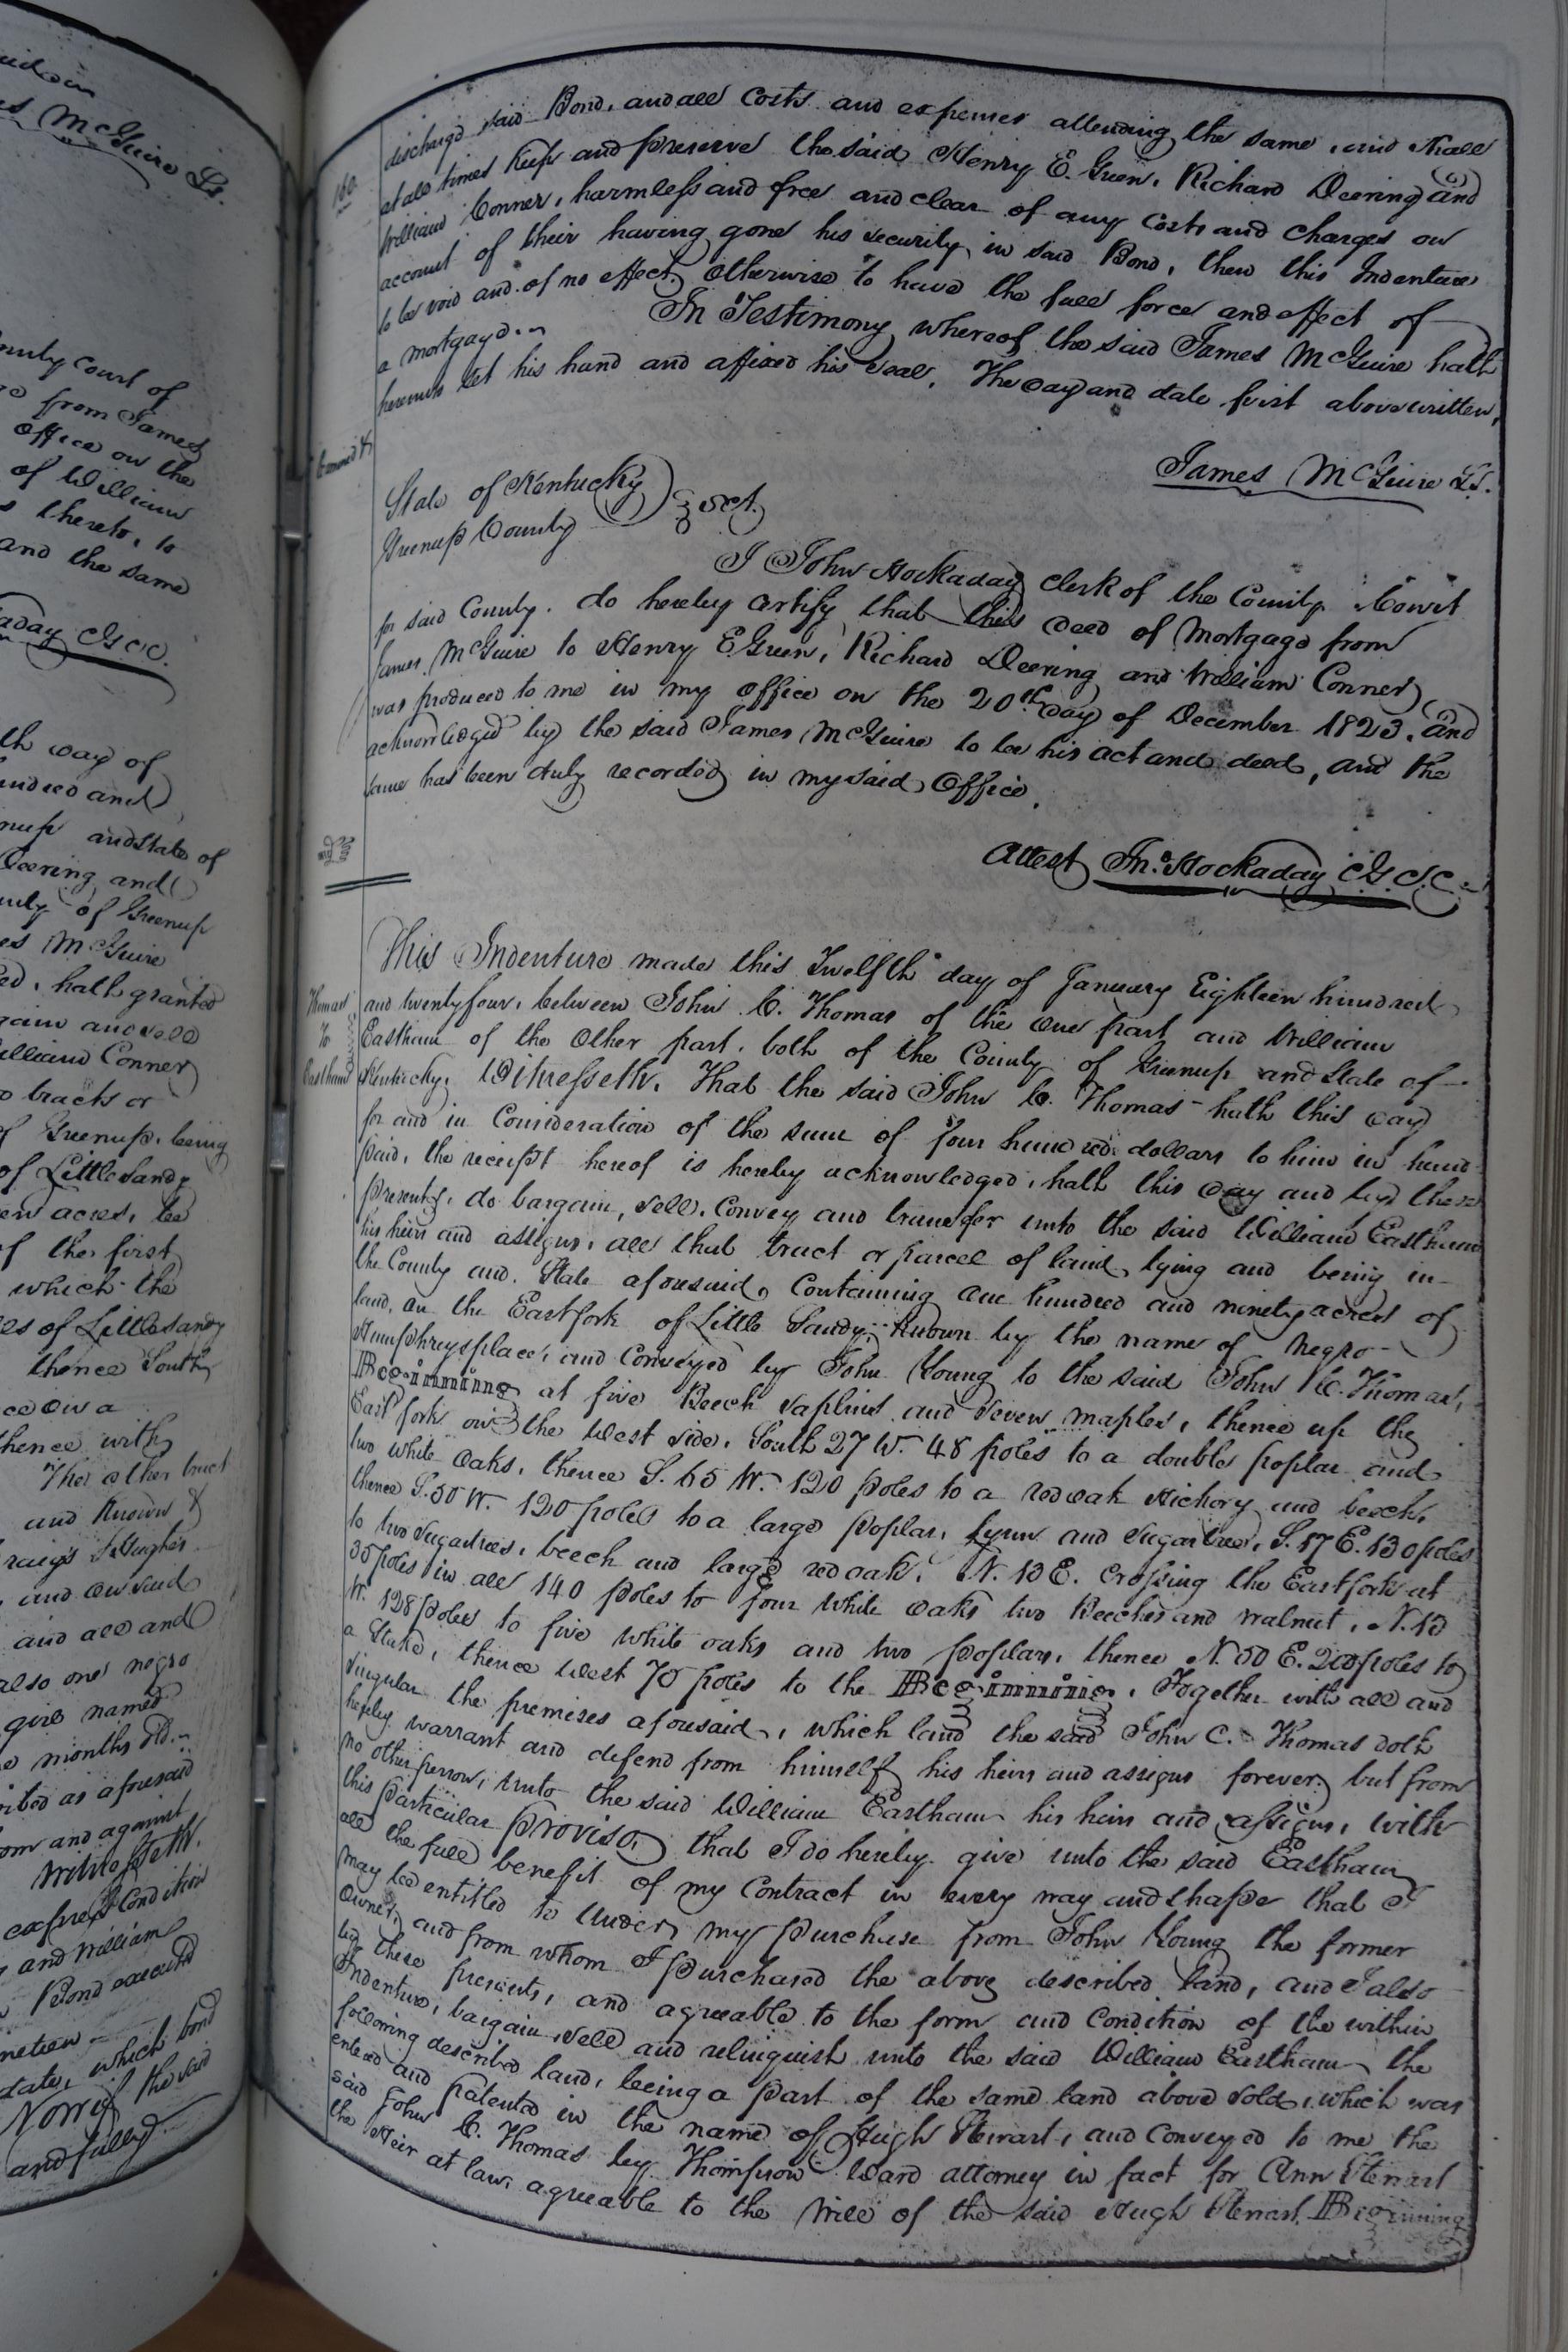 ud in
es McGuire Ls.
County Court of
from James
Office on the
of William
thereto, to
and the same
aday CGCC.
th day of
hundred and
nup and State of
Deering and
County of Greenup
es McGuire
ed, hath granted
gain and sell
William Conner
tracts or
of Greenup, being
of Little Sandy
en acres, be
of the first
which the
es of Little Sandy
thence South
ce on a
thence with
The other tract
and Known
and on said
and all and
also one negro
girl named
months old
ribed as aforesaid
om and against
Witnesseth.
express Condition
and William
Bond executed
neteen
date, which bond
Now if the said
and fully
160
discharge said Bond, and all Costs and expenses attending the same, and shall
at all times Keep and preserve the said Henry E. Green, Richard Deering and
William Conner, harmless and free and clear of any Costs and Charges on
account of their having gone his security in said Bond, then this Indenture
to be void and of no effect, Otherwise to have the full force and effect of
a mortgage.
In Testimony whereof the said James McGuire hath
hereunto set his hand and affixed his seal, The day and date first above written,
James McGuire Ls.
State of Kentucky
Greenup County } Sct.
I John Hockaday Clerk of the County Court
for said County, do hereby Certify that this deed of Mortgage from
James McGuire to Henry E. Green, Richard Deering and William Conner,
was produced to me in my office on the 20th day of December 1823, and
acknowledged by the said James McGuire to be his act and deed, and the
same has been duly recorded in my said Office.
Attest Jno. Hockaday CGCC.
This Indenture made this Twelfth day of January Eighteen hundred
Thomas
to
Eastham
and twenty four, between John C. Thomas of the one part and William
Eastham of the Other part, both of the County of Greenup and State of
Kentucky, Witnesseth, That the said John C. Thomas hath this day
for and in Consideration of the sum of four hundred dollars to him in hand
paid, the receipt hereof is hereby acknowledged, hath this day and by these
presents, do bargain, sell, Convey and transfer unto the said William Eastham
his heirs and assigns, all that tract or parcel of land, lying and being in
the County and State aforesaid, Containing one hundred and ninety acres of
land, on the East fork of Little Sandy, Known by the name of Negro
Humphreys place, and Conveyed by John Young to the said John C. Thomas,
Beginning at five Beech saplins and seven maples, thence up the
East fork on the West side, South 27 W. 48 poles to a double poplar and
two white Oaks, thence S. 65 W. 120 poles to a red oak Hickory and beech,
thence S. 50 W. 120 poles to a large poplar, Lynn and Sugartree, S. 17 E. 130 poles
to two Sugartrees, beech and large red oak, N. 13 E. Crossing the East fork at
35 poles in all 140 poles to four White oaks two Beeches and walnut, N. 13
W. 128 poles to five White oaks and two poplars, thence N. 50 E. 200 poles to
a Stake, thence West 70 poles to the Beginning, Together with all and
singular the premises aforesaid, which land the said John C. Thomas doth
hereby warrant and defend from himself his heirs and assigns forever, but from
no other person, unto the said William Eastham his heirs and assigns, with
this particular proviso, that I do hereby give unto the said Eastham
all the full benefit of my Contract in every way and shape that I
may be entitled to Under my purchase from John Young the former
owner, and from Whom I purchased the above described land, and I also
by these presents, and agreeable to the form and Condition of the within
Indenture, bargain, sell and relinquish unto the said William Eastham the
following described land, being a part of the same land above sold, which was
entered and patented in the name of Hugh Stewart, and Conveyed to me the
said John C. Thomas by Thompson Ward attorney in fact for Ann Stewart
the Heir at law, agreeable to the Will of the said Hugh Stewart, Beginning